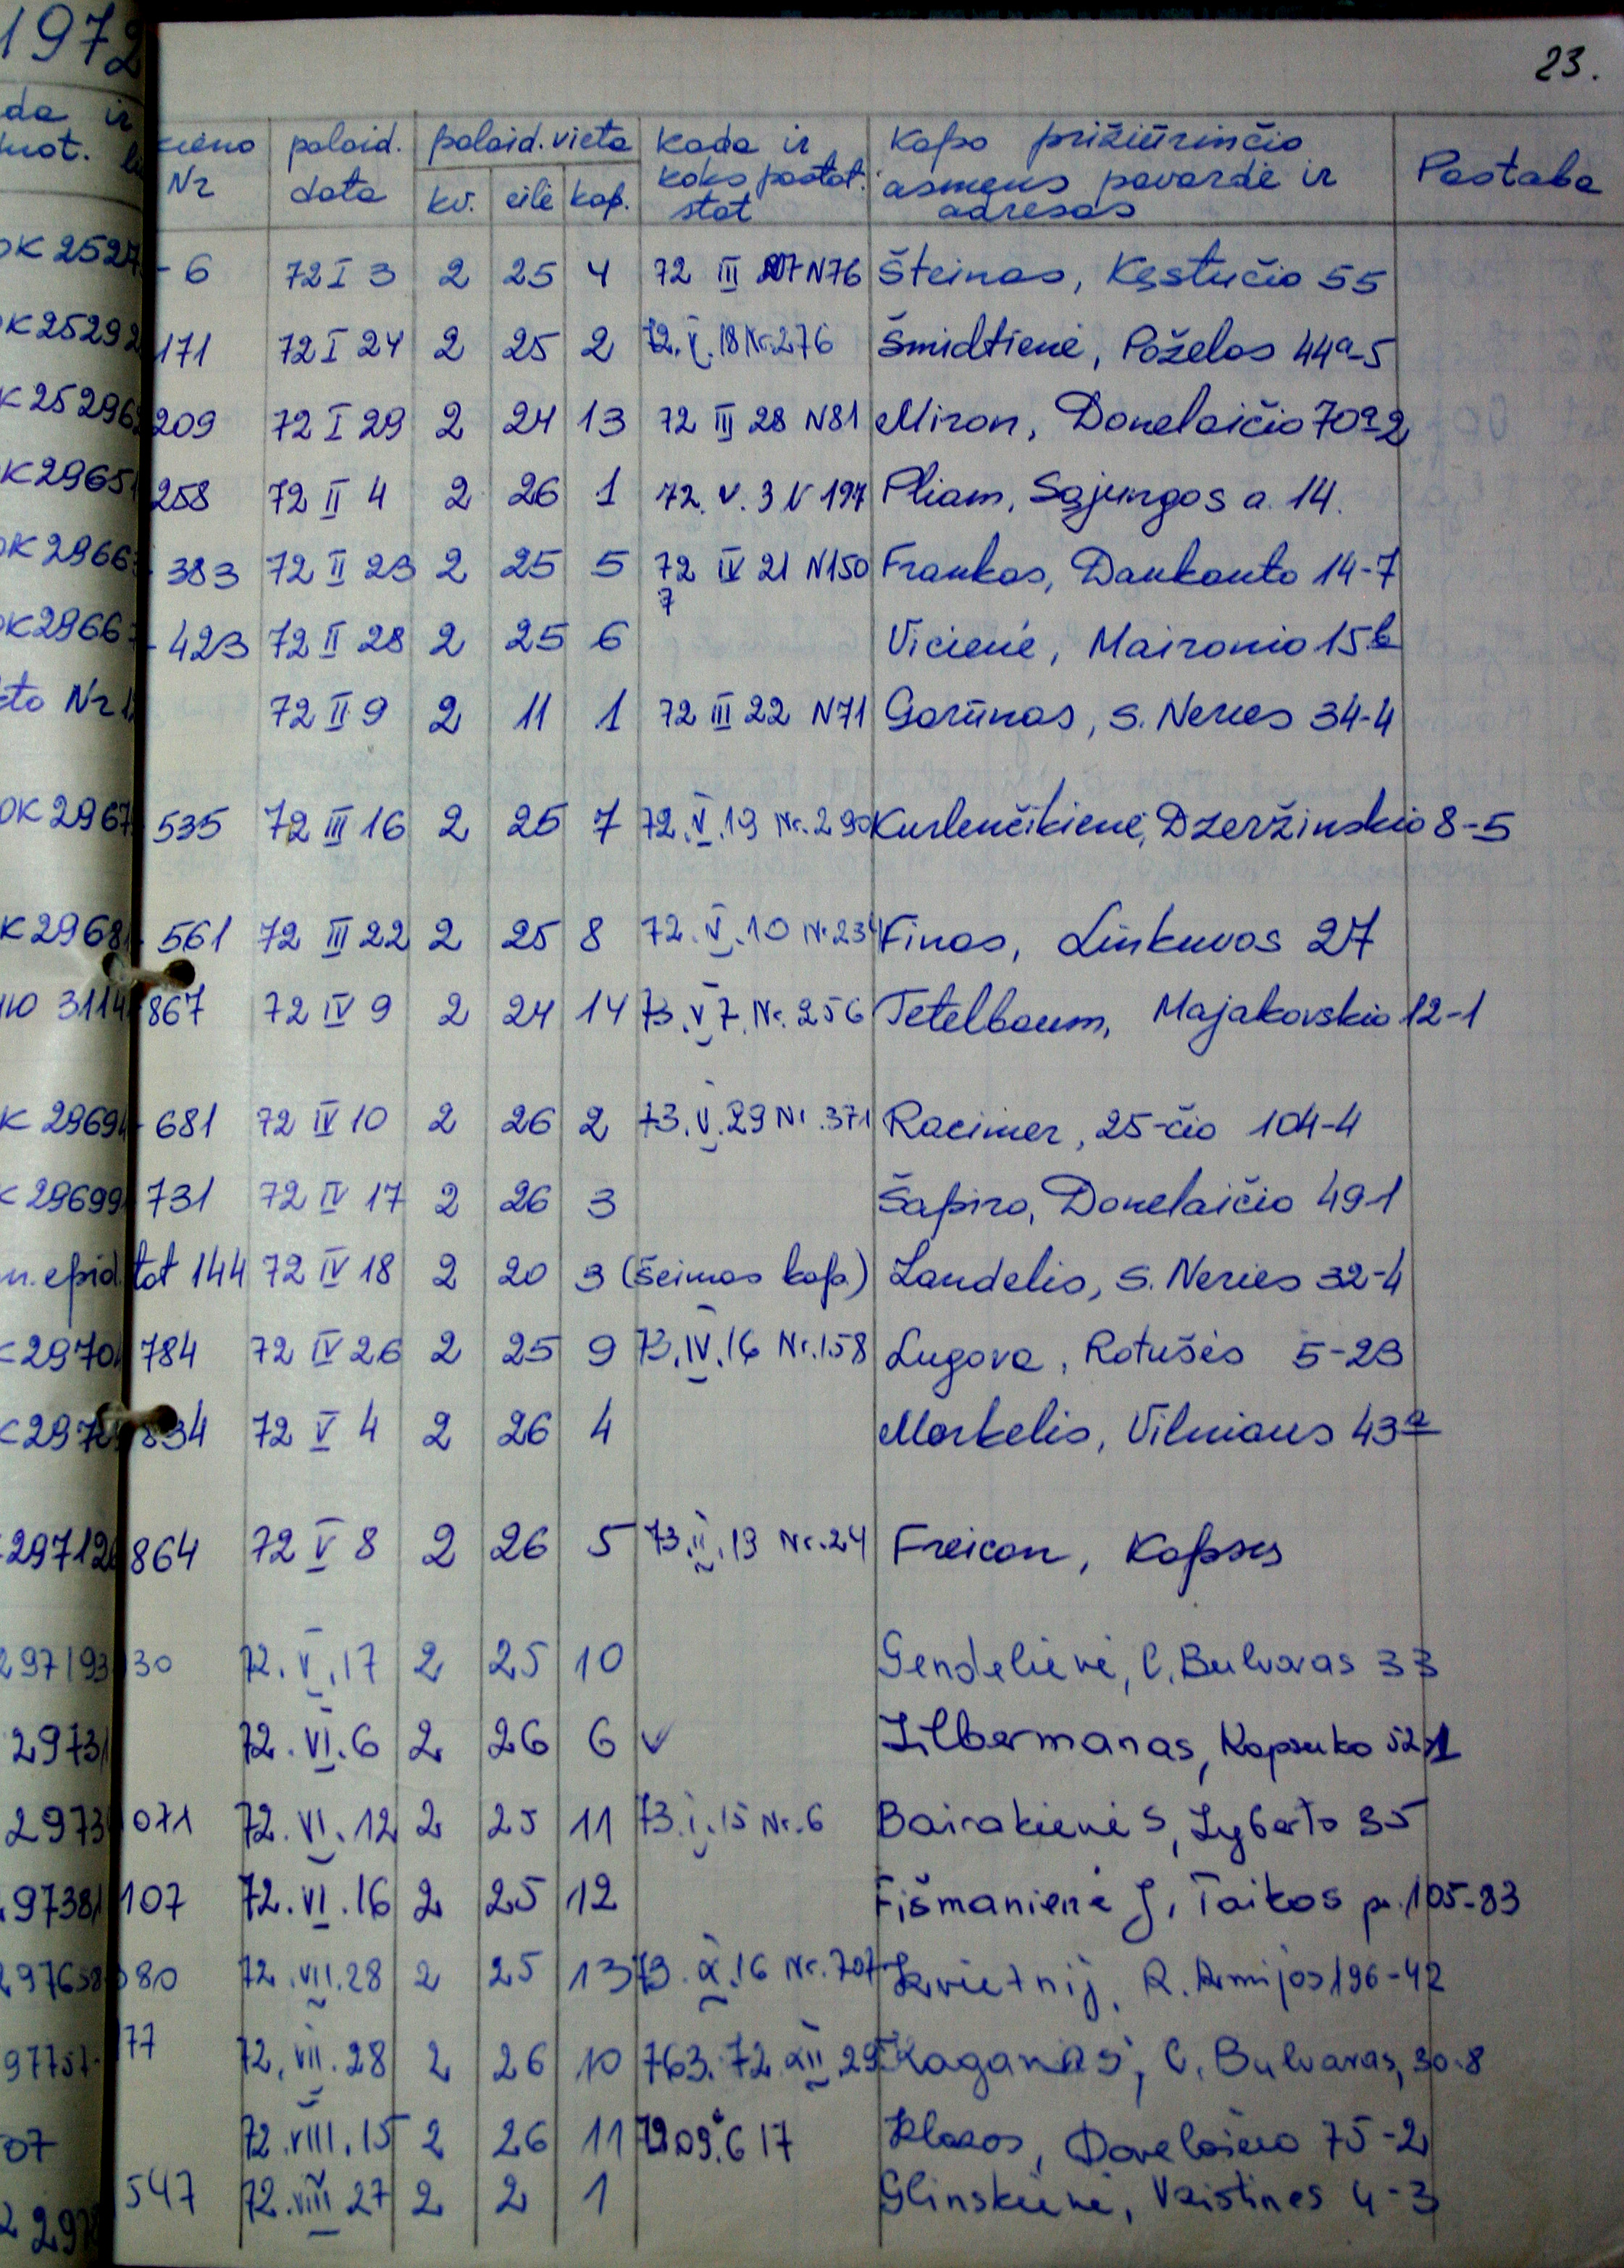 1972
23.
da ir
Nr
palaid. data
palaid. vieta
kv. eilė kap.
kada ir koks pastat. stat
Kapo prižiūrinčio asmens pavardė ir adresas
Pastaba
6 72 I 3 2 25 4 72 III N76 Šteinas, Kęstučio 55
171 72 I 24 2 25 2 72.V.18 Nr.276 Šmidtienė, Požėlos 44a-5
209 72 I 29 2 24 13 72 III 28 N81 Miron, Donelaičio 70a-2
258 72 II 4 2 26 1 72. V. 3 N 197 Pliam, Sąjungos a. 14.
383 72 II 23 2 25 5 72 IV 21 N150 Frankas, Daukanto 14-7
7
423 72 II 28 2 25 6 Vicienė, Maironio 15b
to Nr 72 II 9 2 11 1 72 III 22 N71 Garūnas, S. Neries 34-4
535 72 III 16 2 25 7 72.V.19 Nr.290 Kurlenčikienė, Dzeržinskio 8-5
561 72 III 22 2 25 8 72.V.10 Nr.234 Finas, Linkuvos 27
867 72 IV 9 2 24 14 73.V 7. Nr. 256 Tetelbaum, Majakovskio 12-1
681 72 IV 10 2 26 2 73.V.29 Nr.371 Racimer, 25-čio 104-4
731 72 IV 17 2 26 3 Šapiro, Donelaičio 49-1
epid. tat 144 72 IV 18 2 20 3 (šeimos kap.) Landelis, S. Neries 32-4
784 72 IV 26 2 25 9 73.IV.16 Nr.158 Lugova, Rotušės 5-23
834 72 V 4 2 26 4 Morkelis, Vilniaus 43a
864 72 V 8 2 26 5 73.II.13 Nr.24 Freican, Kapsės
30 72.V.17 2 25 10 Gendelienė, C. Bulvaras 33
72.VI.6 2 26 6 Zilbermanas, Kapsuko 52-1
071 72.VI.12 2 25 11 73.I.15 Nr.6 Bairakienė S, Lyberto 35
107 72.VI.16 2 25 12 Fišmanienė J, Taikos pr. 105-83
80 72.VII.28 2 25 13 73.X.16 Nr.707 Kvietnij, R. Armijos 196-42
77 72.VII.28 2 26 10 763. 72.XII.29 Kaganas, C. Bulvaras, 30-8
07 72.VIII.15 2 26 11 Klasos, Donelaičio 75-2
547 72.VIII 27 2 2 1 Glinskienė, Vaistinės 4-3